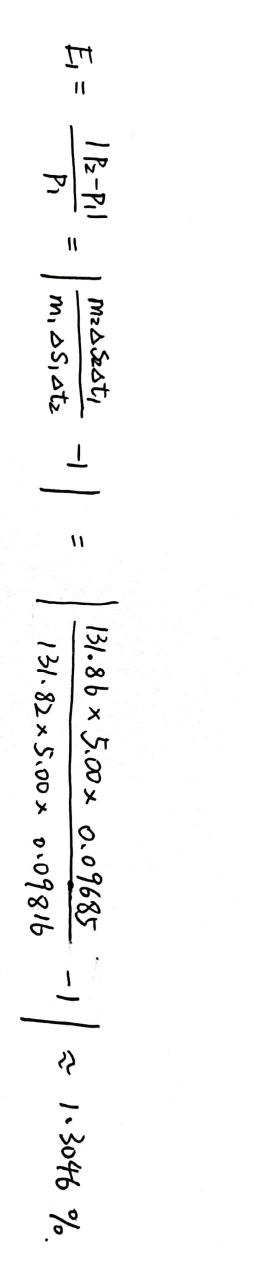 E₁ = |P₂-P₁|/P₁ = |m₂ΔS₂Δt₁/m₁ΔS₁Δt₂ - 1| = |131.86×5.00×0.09685/131.82×5.00×0.09816 - 1| ≈ 1.3046 %.